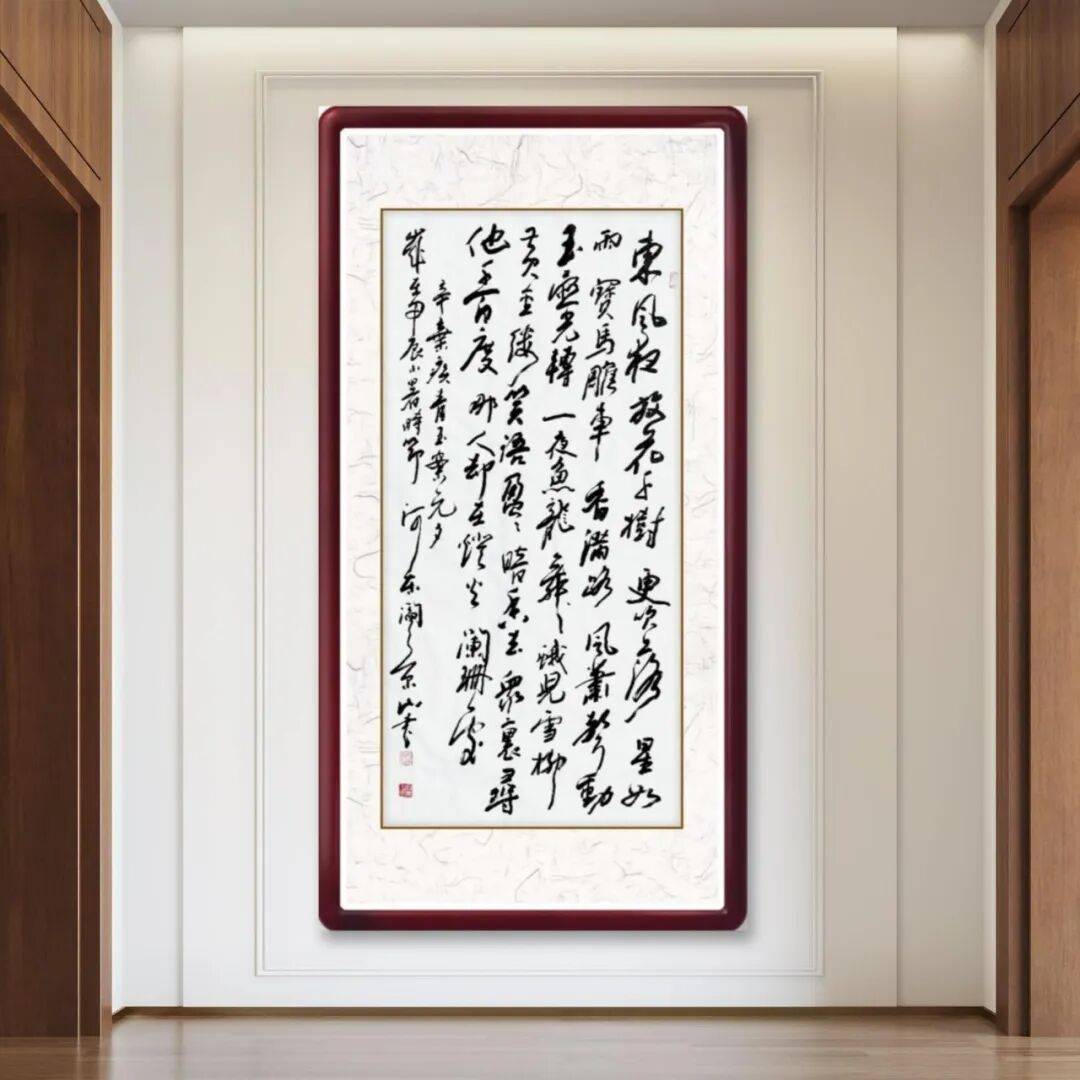 東風夜放花千樹 更吹落 星如
雨 寶馬雕車 香滿路 風簫聲動
玉壺光轉 一夜魚龍舞 蛾兒雪柳
黃金縷 笑語盈〻 暗香去 衆裏尋
他千百度 那人却在燈火 闌珊處
辛棄疾青玉案元夕
歲在甲辰小暑時節 河東 京山書